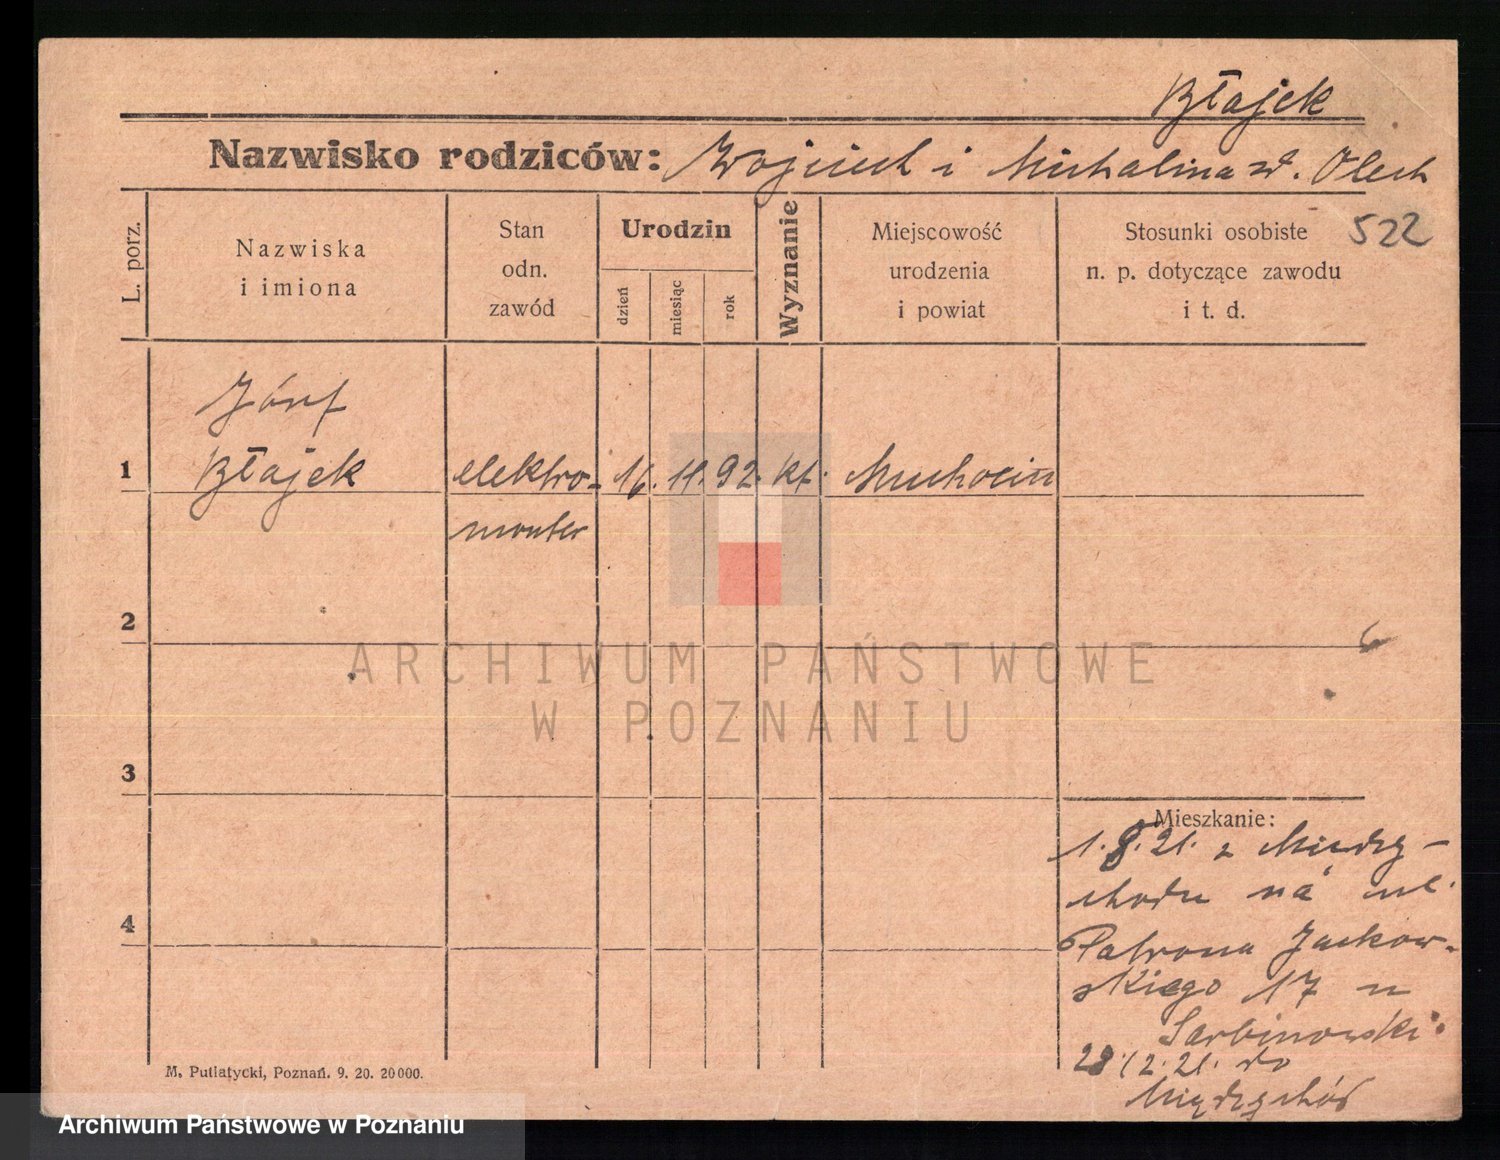 Błajek
Nazwisko rodziców: Wojciech i Michalina zd. Olech
L. porz.
Nazwiska
i imiona
Stan
odn.
zawód
Urodzin
dzień
miesiąc
rok
Wyznanie
Miejscowość
urodzenia
i powiat
Stosunki osobiste
n. p. dotyczące zawodu
i t. d.
522
Józef
1 Błajek elektro- 16. 11. 92. kt. Muchocin
monter
2
ARCHIWUM PAŃSTWOWE
W POZNANIU
3
Mieszkanie:
1.8.21. z Między-
chodu na ul.
4
Patrona Jackow-
skiego 17 u
Sarbinowski.
28.12.21. do
Międzychód
M. Putiatycki, Poznań. 9. 20. 20000.
Archiwum Państwowe w Poznaniu